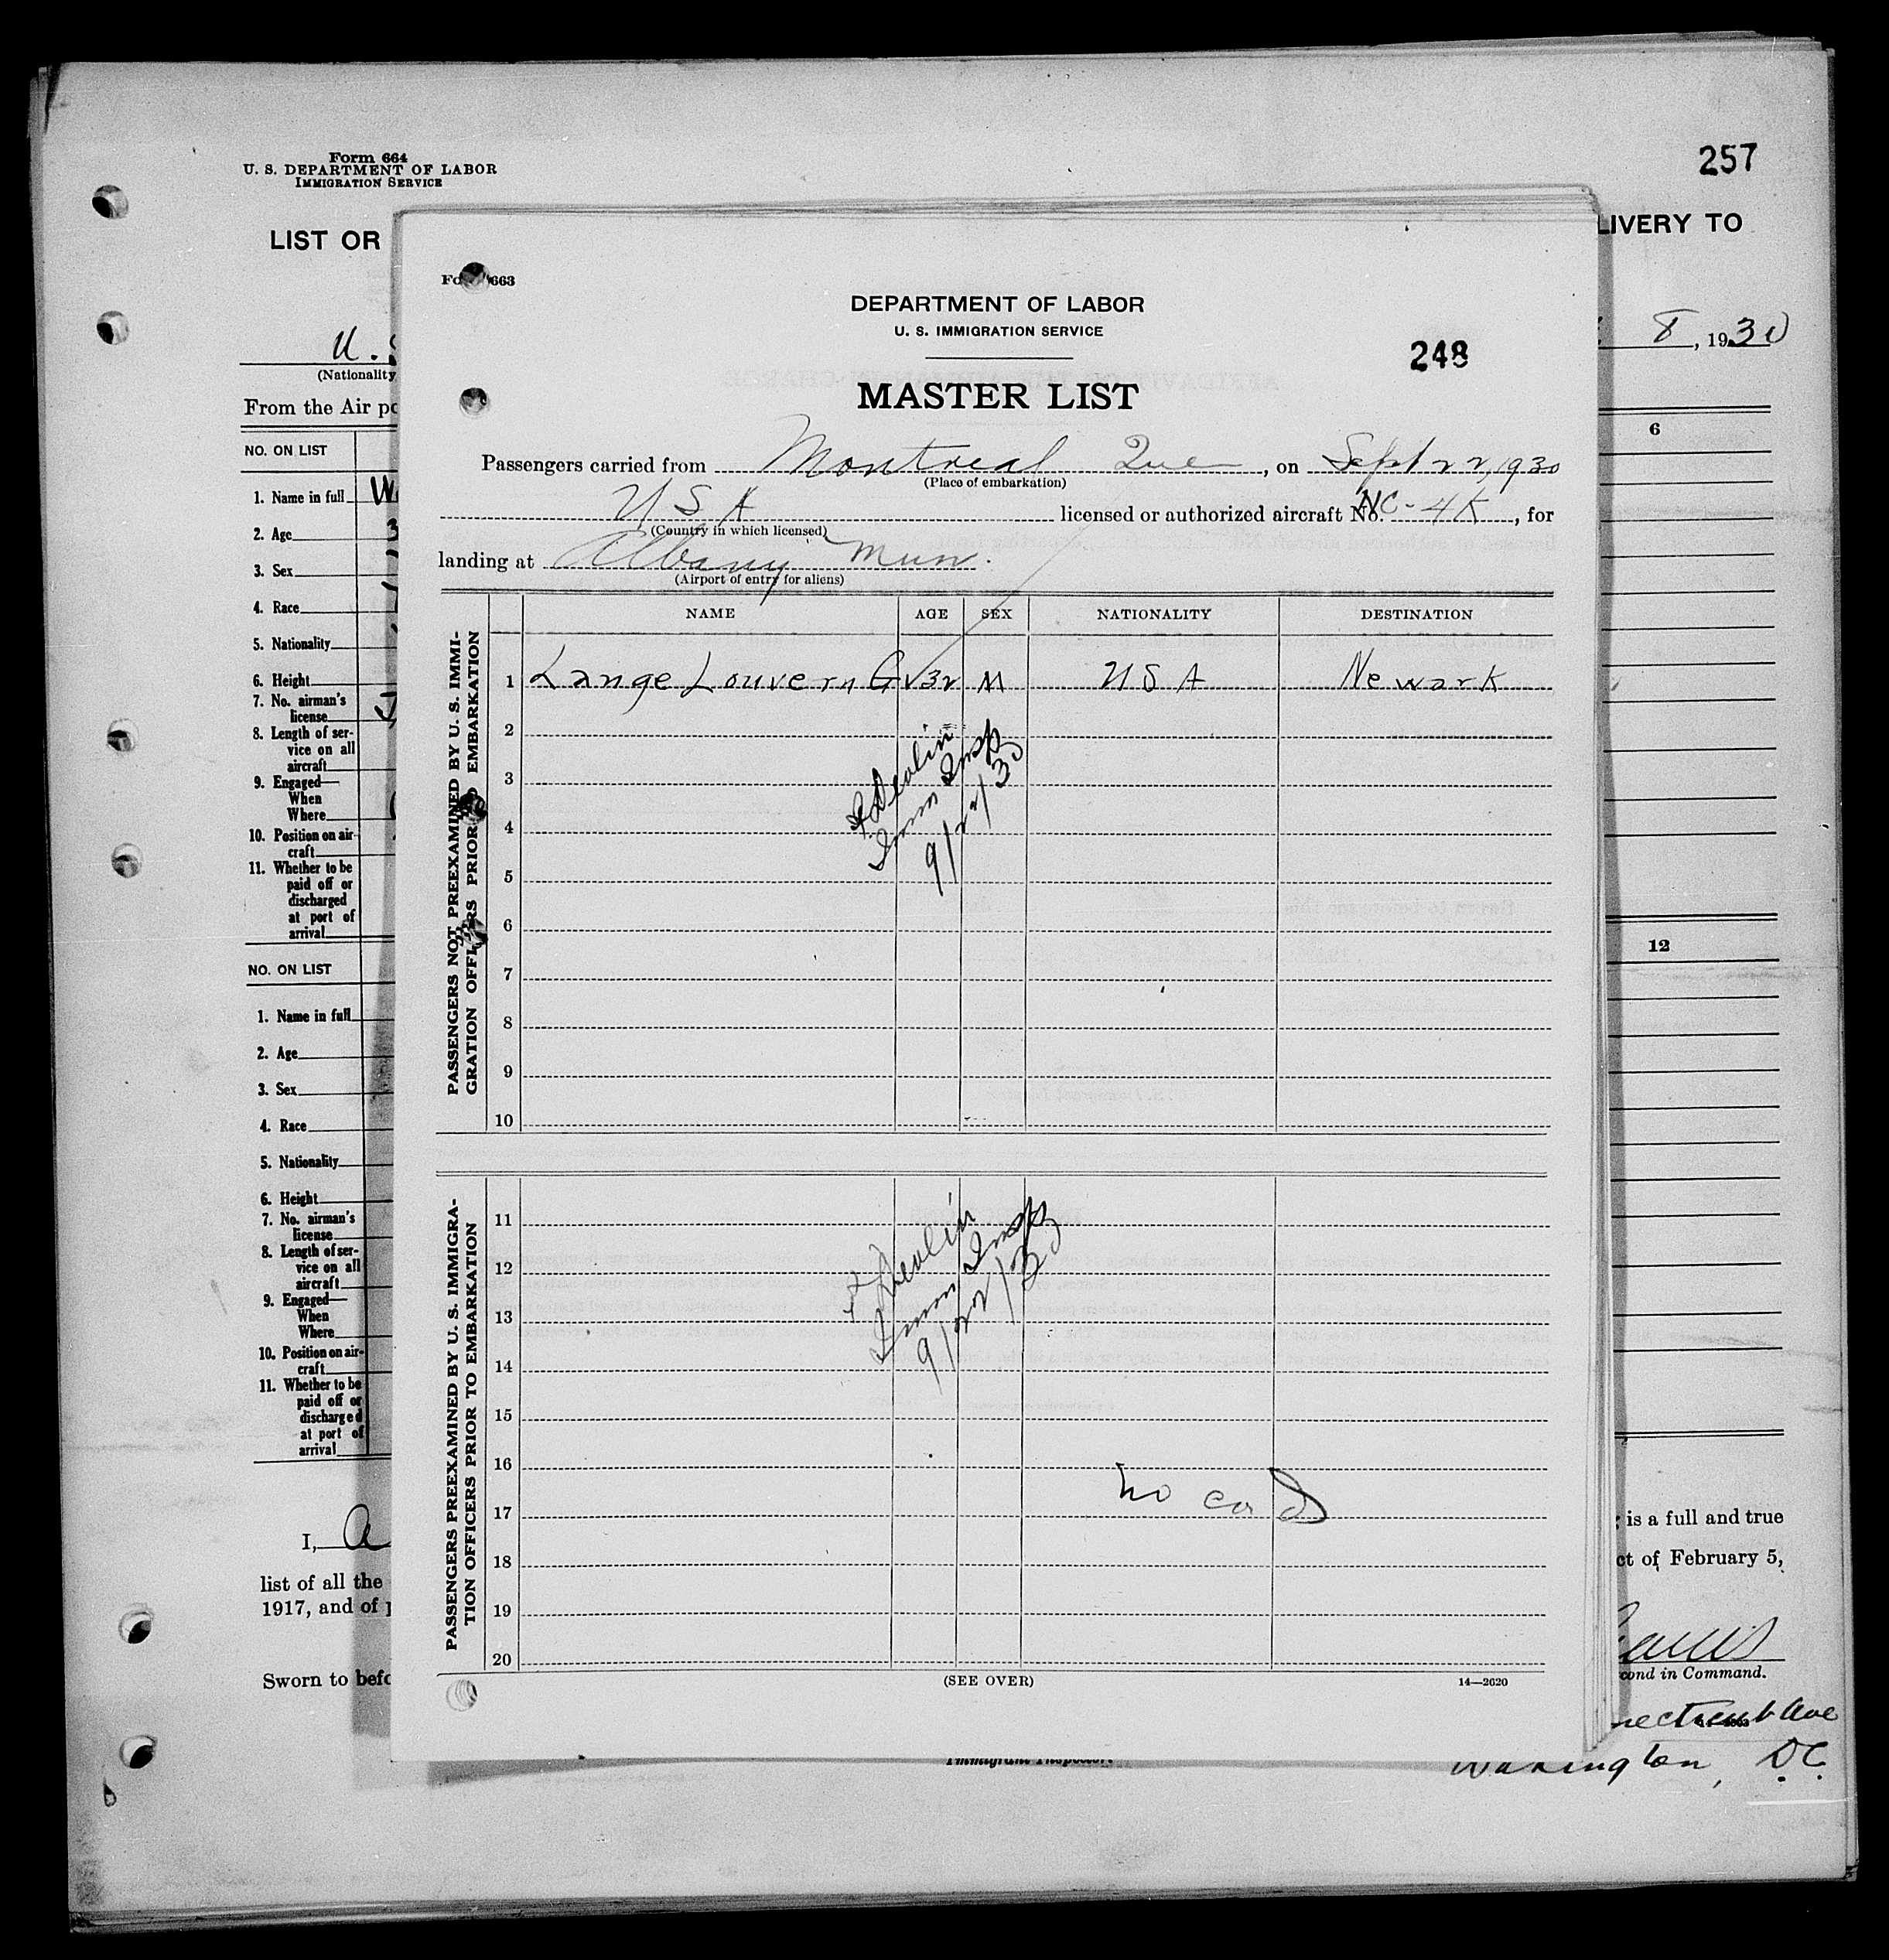 Form 664
U. S. DEPARTMENT OF LABOR
IMMIGRATION SERVICE
257
LIST OR
LIVERY TO
U.
8, 1930
(Nationality
From the Air po
NO. ON LIST
6
1. Name in full
2. Age
3. Sex
4. Race
5. Nationality
6. Height
7. No. airman's
license
8. Length of ser-
vice on all
aircraft
9. Engaged—
When
Where
10. Position on air-
craft
11. Whether to be
paid off or
discharged
at port of
arrival
NO. ON LIST
12
1. Name in full
2. Age
3. Sex
4. Race
5. Nationality
6. Height
7. No. airman's
license
8. Length of ser-
vice on all
aircraft
9. Engaged—
When
Where
10. Position on air-
craft
11. Whether to be
paid off or
discharged
at port of
arrival
I,
is a full and true
list of all the
ct of February 5,
1917, and of
Sworn to befo
cond in Command.
necticut Ave
Immigrant Inspector.
Washington, D.C.
663
DEPARTMENT OF LABOR
U. S. IMMIGRATION SERVICE
248
MASTER LIST
Passengers carried from Montreal Que, on Sept 22, 1930
(Place of embarkation)
USA licensed or authorized aircraft No. NC-4K, for
(Country in which licensed)
landing at Albany Mun.
(Airport of entry for aliens)
NAME AGE SEX NATIONALITY DESTINATION
PASSENGERS NOT PREEXAMINED BY U. S. IMMI-
GRATION OFFICERS PRIOR TO EMBARKATION
1 Lange Louvern G 32 M USA Newark
2
3
4
5
6
7
8
9
10
Devlin
Imm Insp
9/22/30
PASSENGERS PREEXAMINED BY U. S. IMMIGRA-
TION OFFICERS PRIOR TO EMBARKATION
11
12
13
14
15
16
17
18
19
20
Devlin
Imm Insp
9/22/30
no cad
(SEE OVER)
14—2620